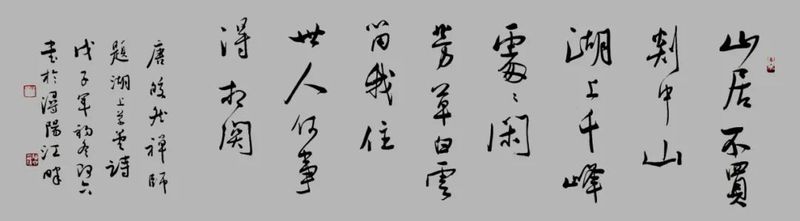 山居不買
剡中山
湖上千峰
處〻闲
芳草白雲
留我住
世人何事
得相関
唐皎然禪師
題湖上草堂詩
戊子年初冬六
書於潯陽江畔